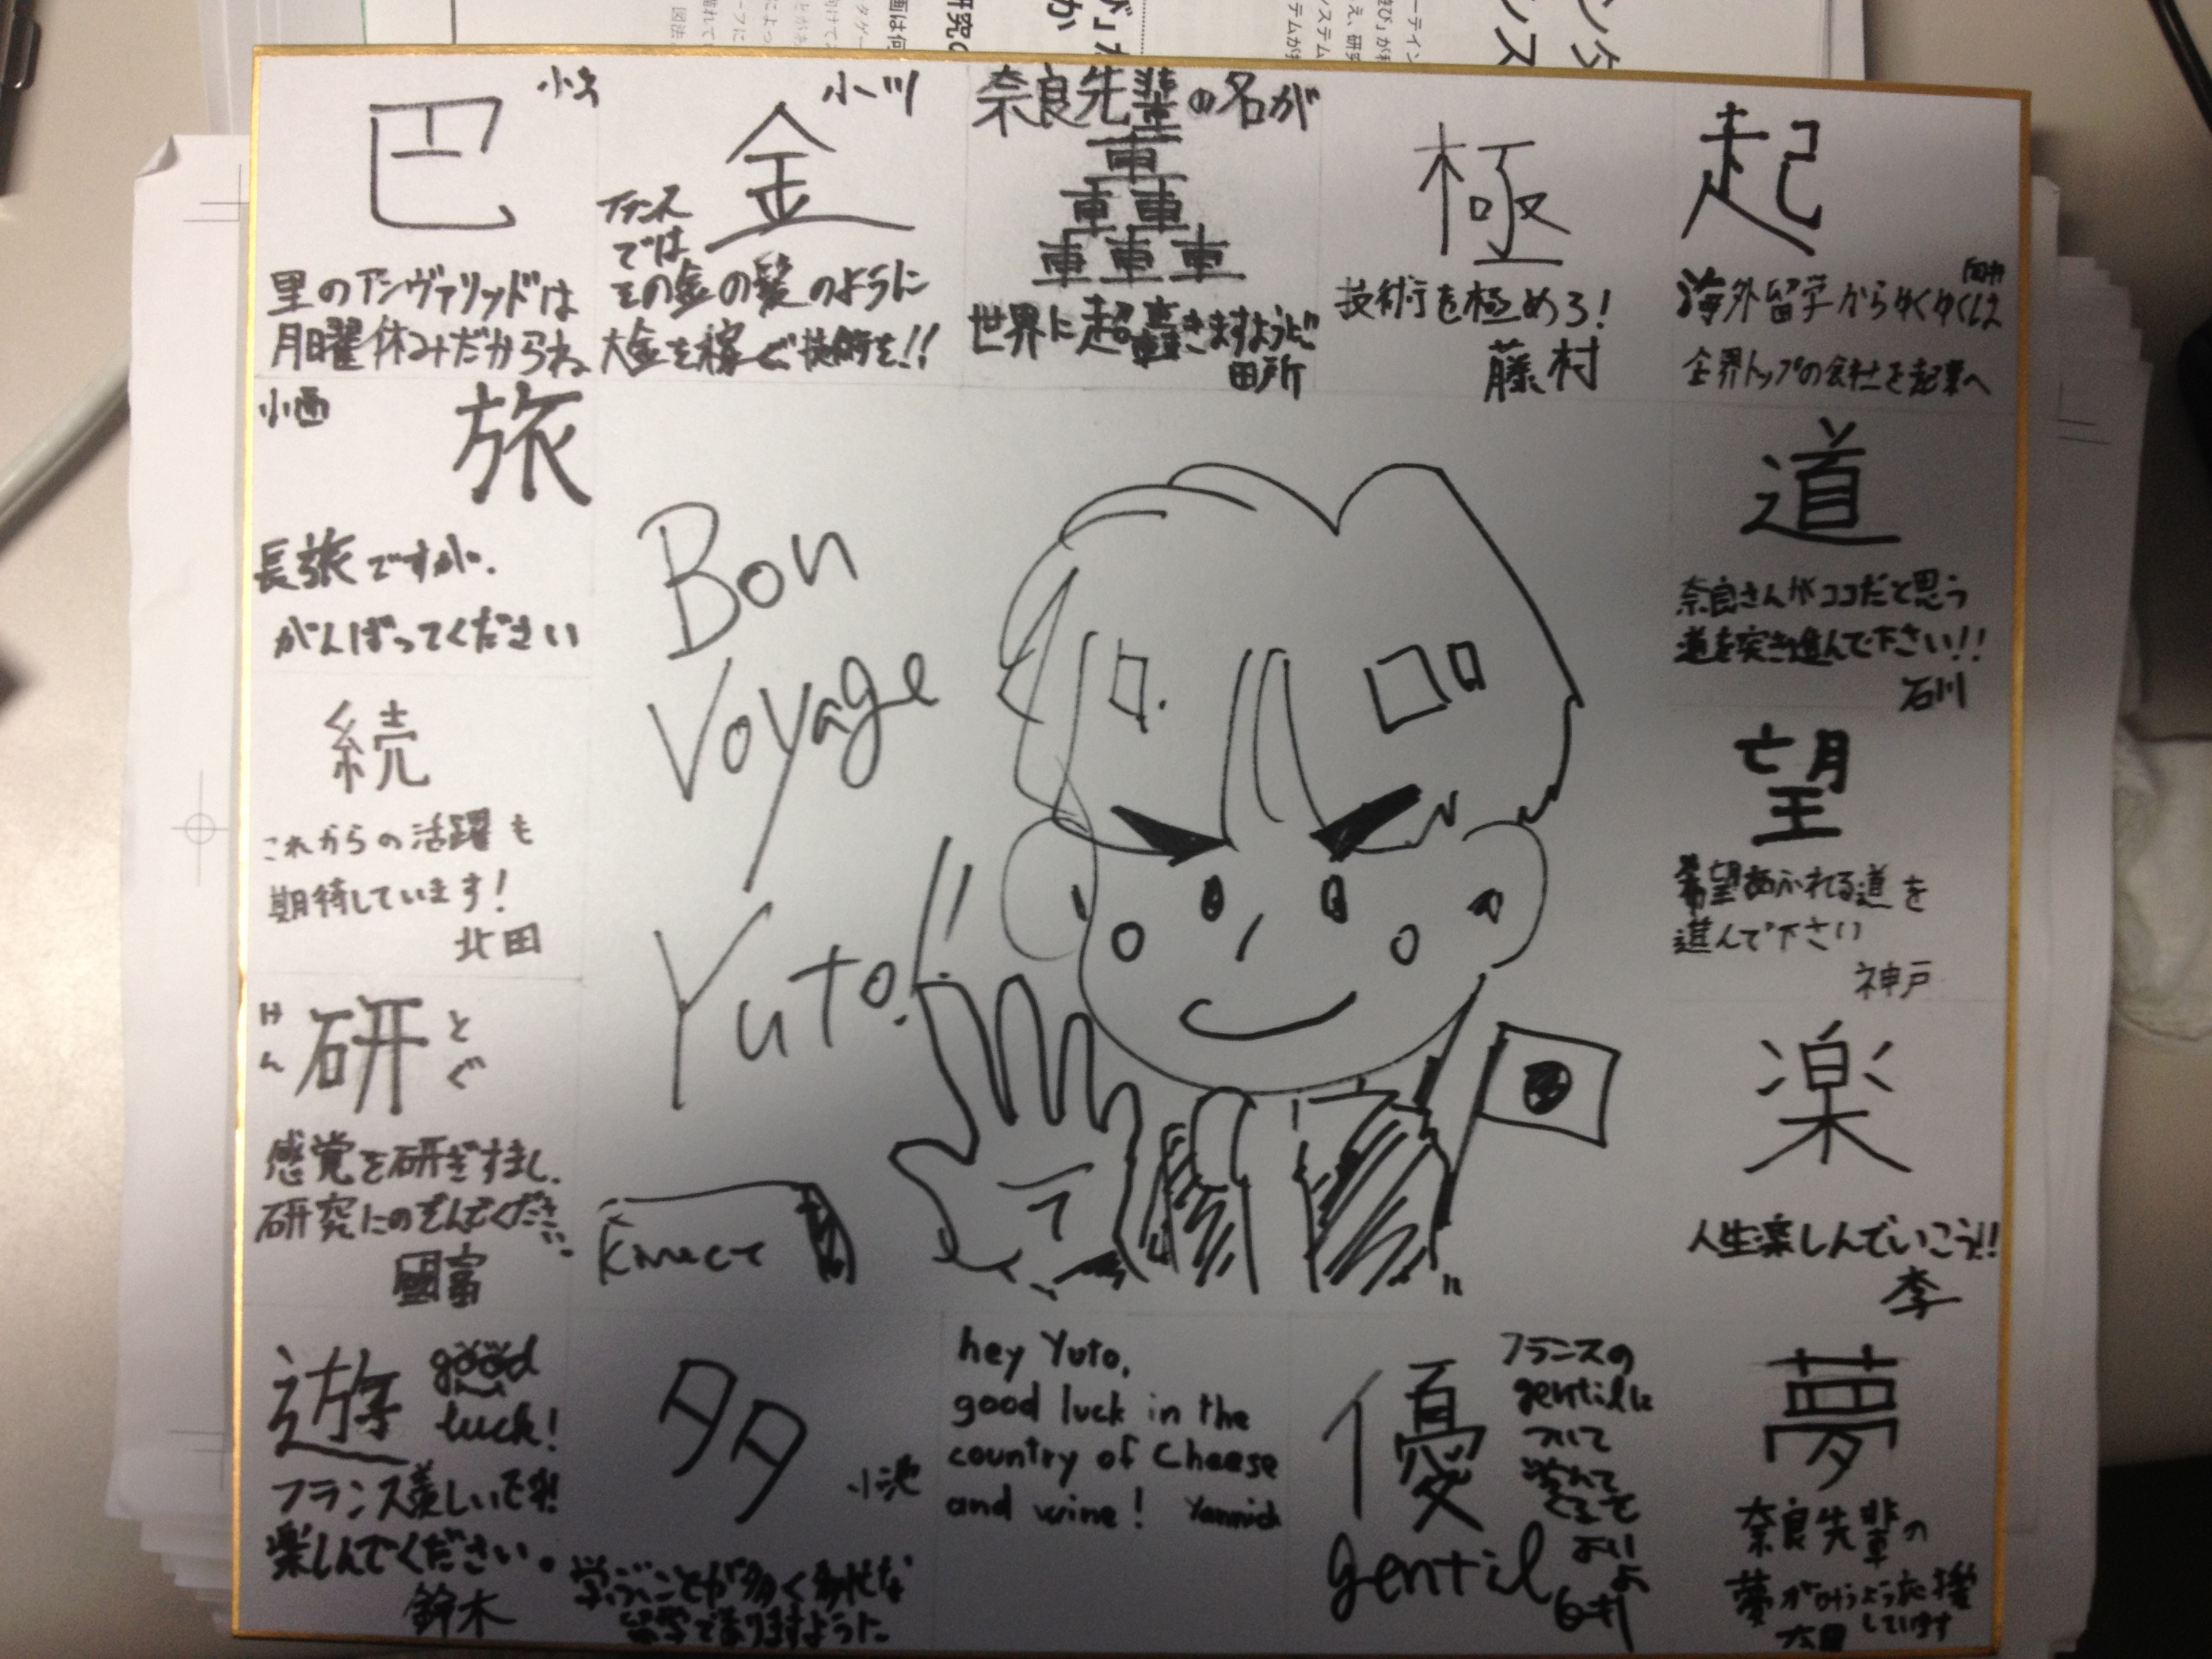 巴
里のアンヴァリッドは
月曜休みだからね
小川
金
フランス
では
その金の髪のように
大金を稼ぐ技術を!!
奈良先輩の名が
車
車車
車車車
世界に超轟きますように
田戸所
極
技術を極めろ!
藤村
起
海外留学からゆくゆくは
世界トップの会社を起業へ
小西
旅
長旅ですが、
がんばってください
続
これからの活躍も
期待しています!
北田
けん
研
とぐ
感覚を研ぎすまし、
研究にのぞんでください。
國富
Bon
Voyage
Yuto!!
Kinect
道
奈良さんがココだと思う
道を突き進んで下さい!!
石川
望
希望あふれる道を
進んで下さい
神戸
楽
人生楽しんでいこう!!
李
遊
good
luck!
フランス美しいです!
楽しんでください。
鈴木
多
小池
学ぶことが多く多忙な
留学でありますように
hey Yuto,
good luck in the
country of Cheese
and wine! Yannick
優
gentil
フランスの
gentilに
ついて
学んで
くると
よい
よ
白井
夢
奈良先輩の
夢が叶うよう応援
しています